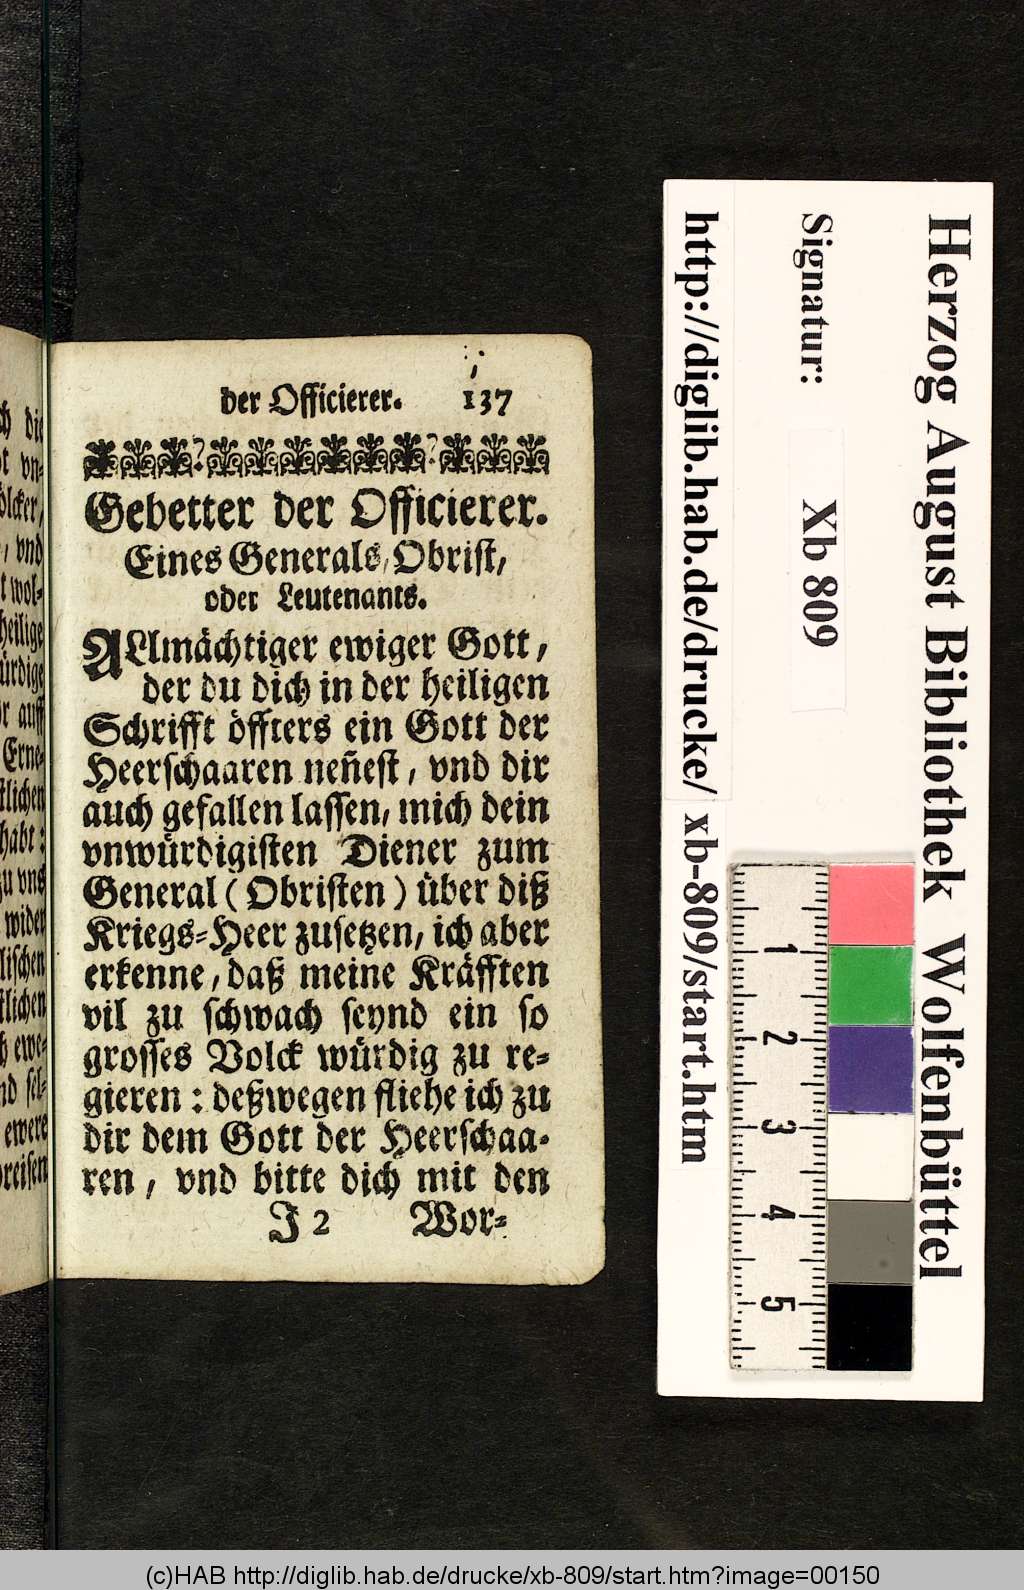 der Officierer. 137
Gebetter der Officierer.
Eines Generals, Obrist,
oder Leutenants.
ALlmächtiger ewiger Gott,
der du dich in der heiligen
Schrifft öffters ein Gott der
Heerschaaren neñest, vnd dir
auch gefallen lassen, mich dein
vnwürdigisten Diener zum
General (Obristen) über diß
Kriegs-Heer zusetzen, ich aber
erkenne, daß meine Kräfften
vil zu schwach seynd ein so
grosses Volck würdig zu re-
gieren: deßwegen fliehe ich zu
dir dem Gott der Heerschaa-
ren, vnd bitte dich mit den
J 2 Wor-
die
vn-
ölcker,
, vnd
wol-
heilige
ürdige
auff
Erne-
tlichen
habt:
zu vns
wider
lischen
tlichen
ewe-
sel-
ewere
preisen
Herzog August Bibliothek Wolfenbüttel
Signatur: Xb 809
http://diglib.hab.de/drucke/ xb-809/start.htm
1
2
3
4
5
(c)HAB http://diglib.hab.de/drucke/xb-809/start.htm?image=00150